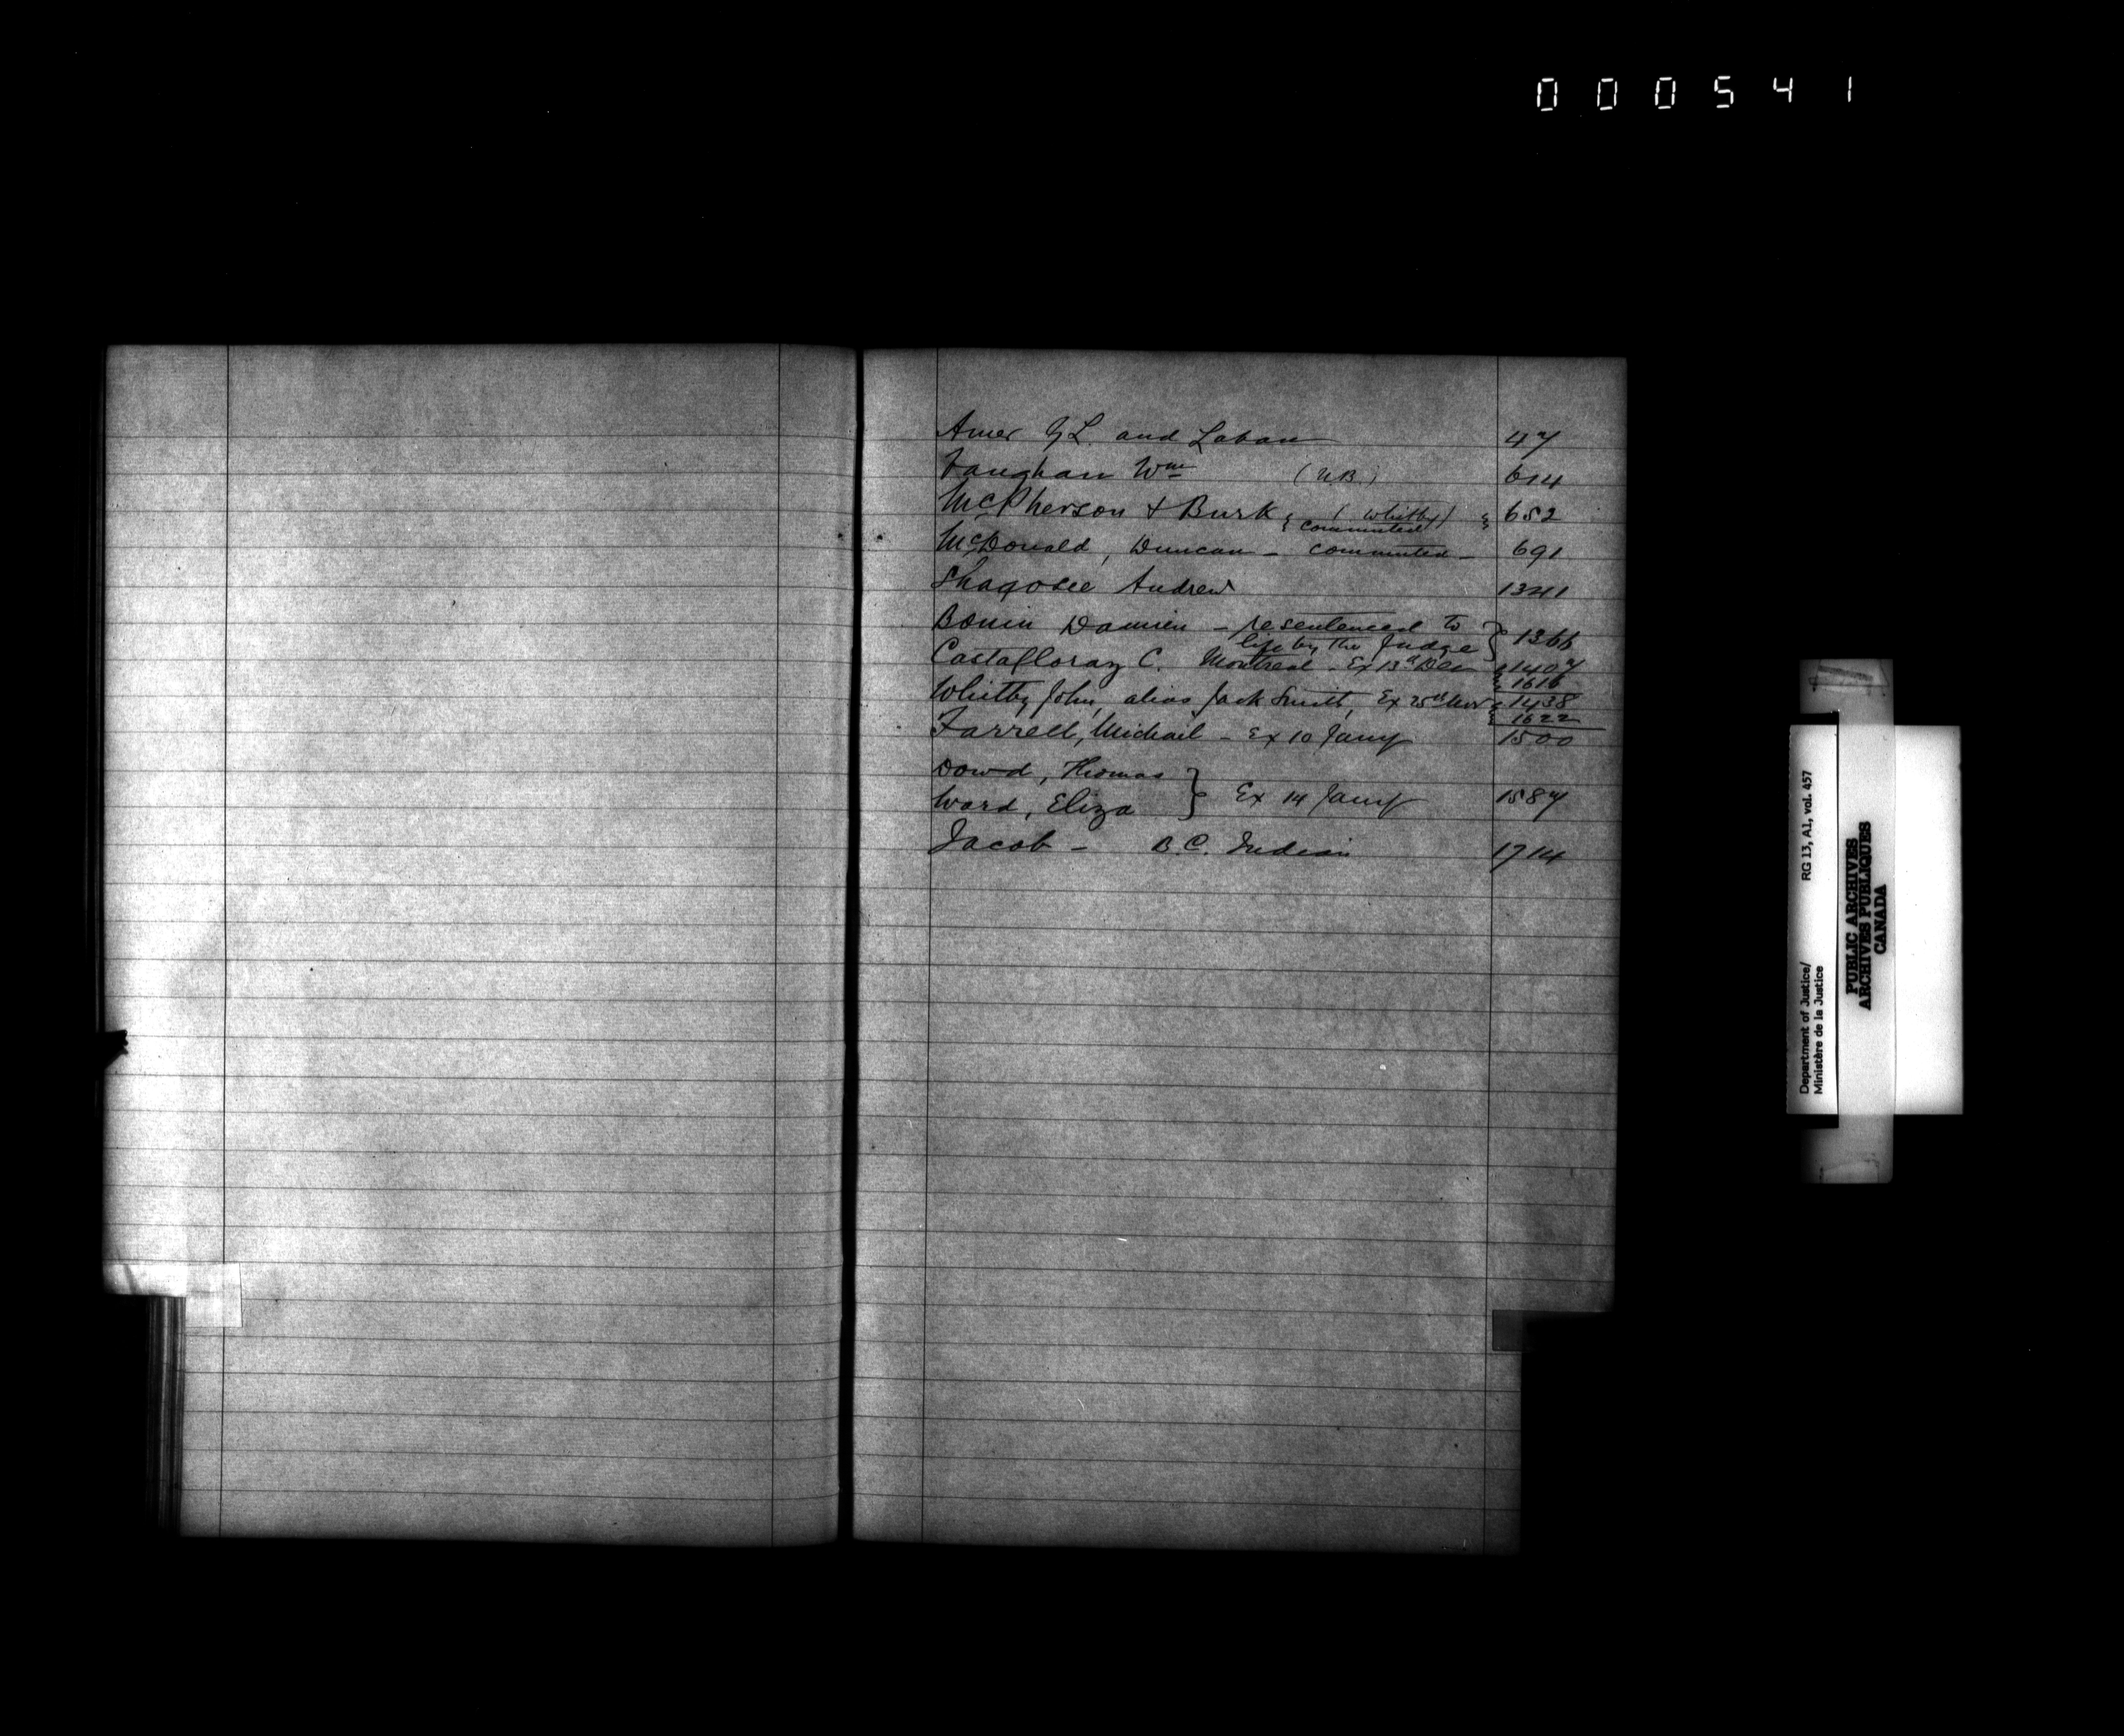 000541
Amer G L. and Laban 47
Vaughan Wm (N.B.) 614
McPherson + Burk { (Whitby) } 652
commuted
McDonald, Duncan - commuted - 691
Andrew 1341
Bonin Damien - resentenced to } 1366
life by the Judge
C. Montreal - Ex 13th Dec { 1407
{ 1616
Whitby John, alias Jack Smith, Ex 25th Nov { 1438
{ 1622
Farrell, Michail - Ex 10 Jany 1500
Dowd, Thomas }
Ward, Eliza } Ex 14 Jany 1587
Jacob - B.C. Indian 1714
Department of Justice/ RG 13, A1, vol. 457
Ministère de la Justice
PUBLIC ARCHIVES
ARCHIVES PUBLIQUES
CANADA